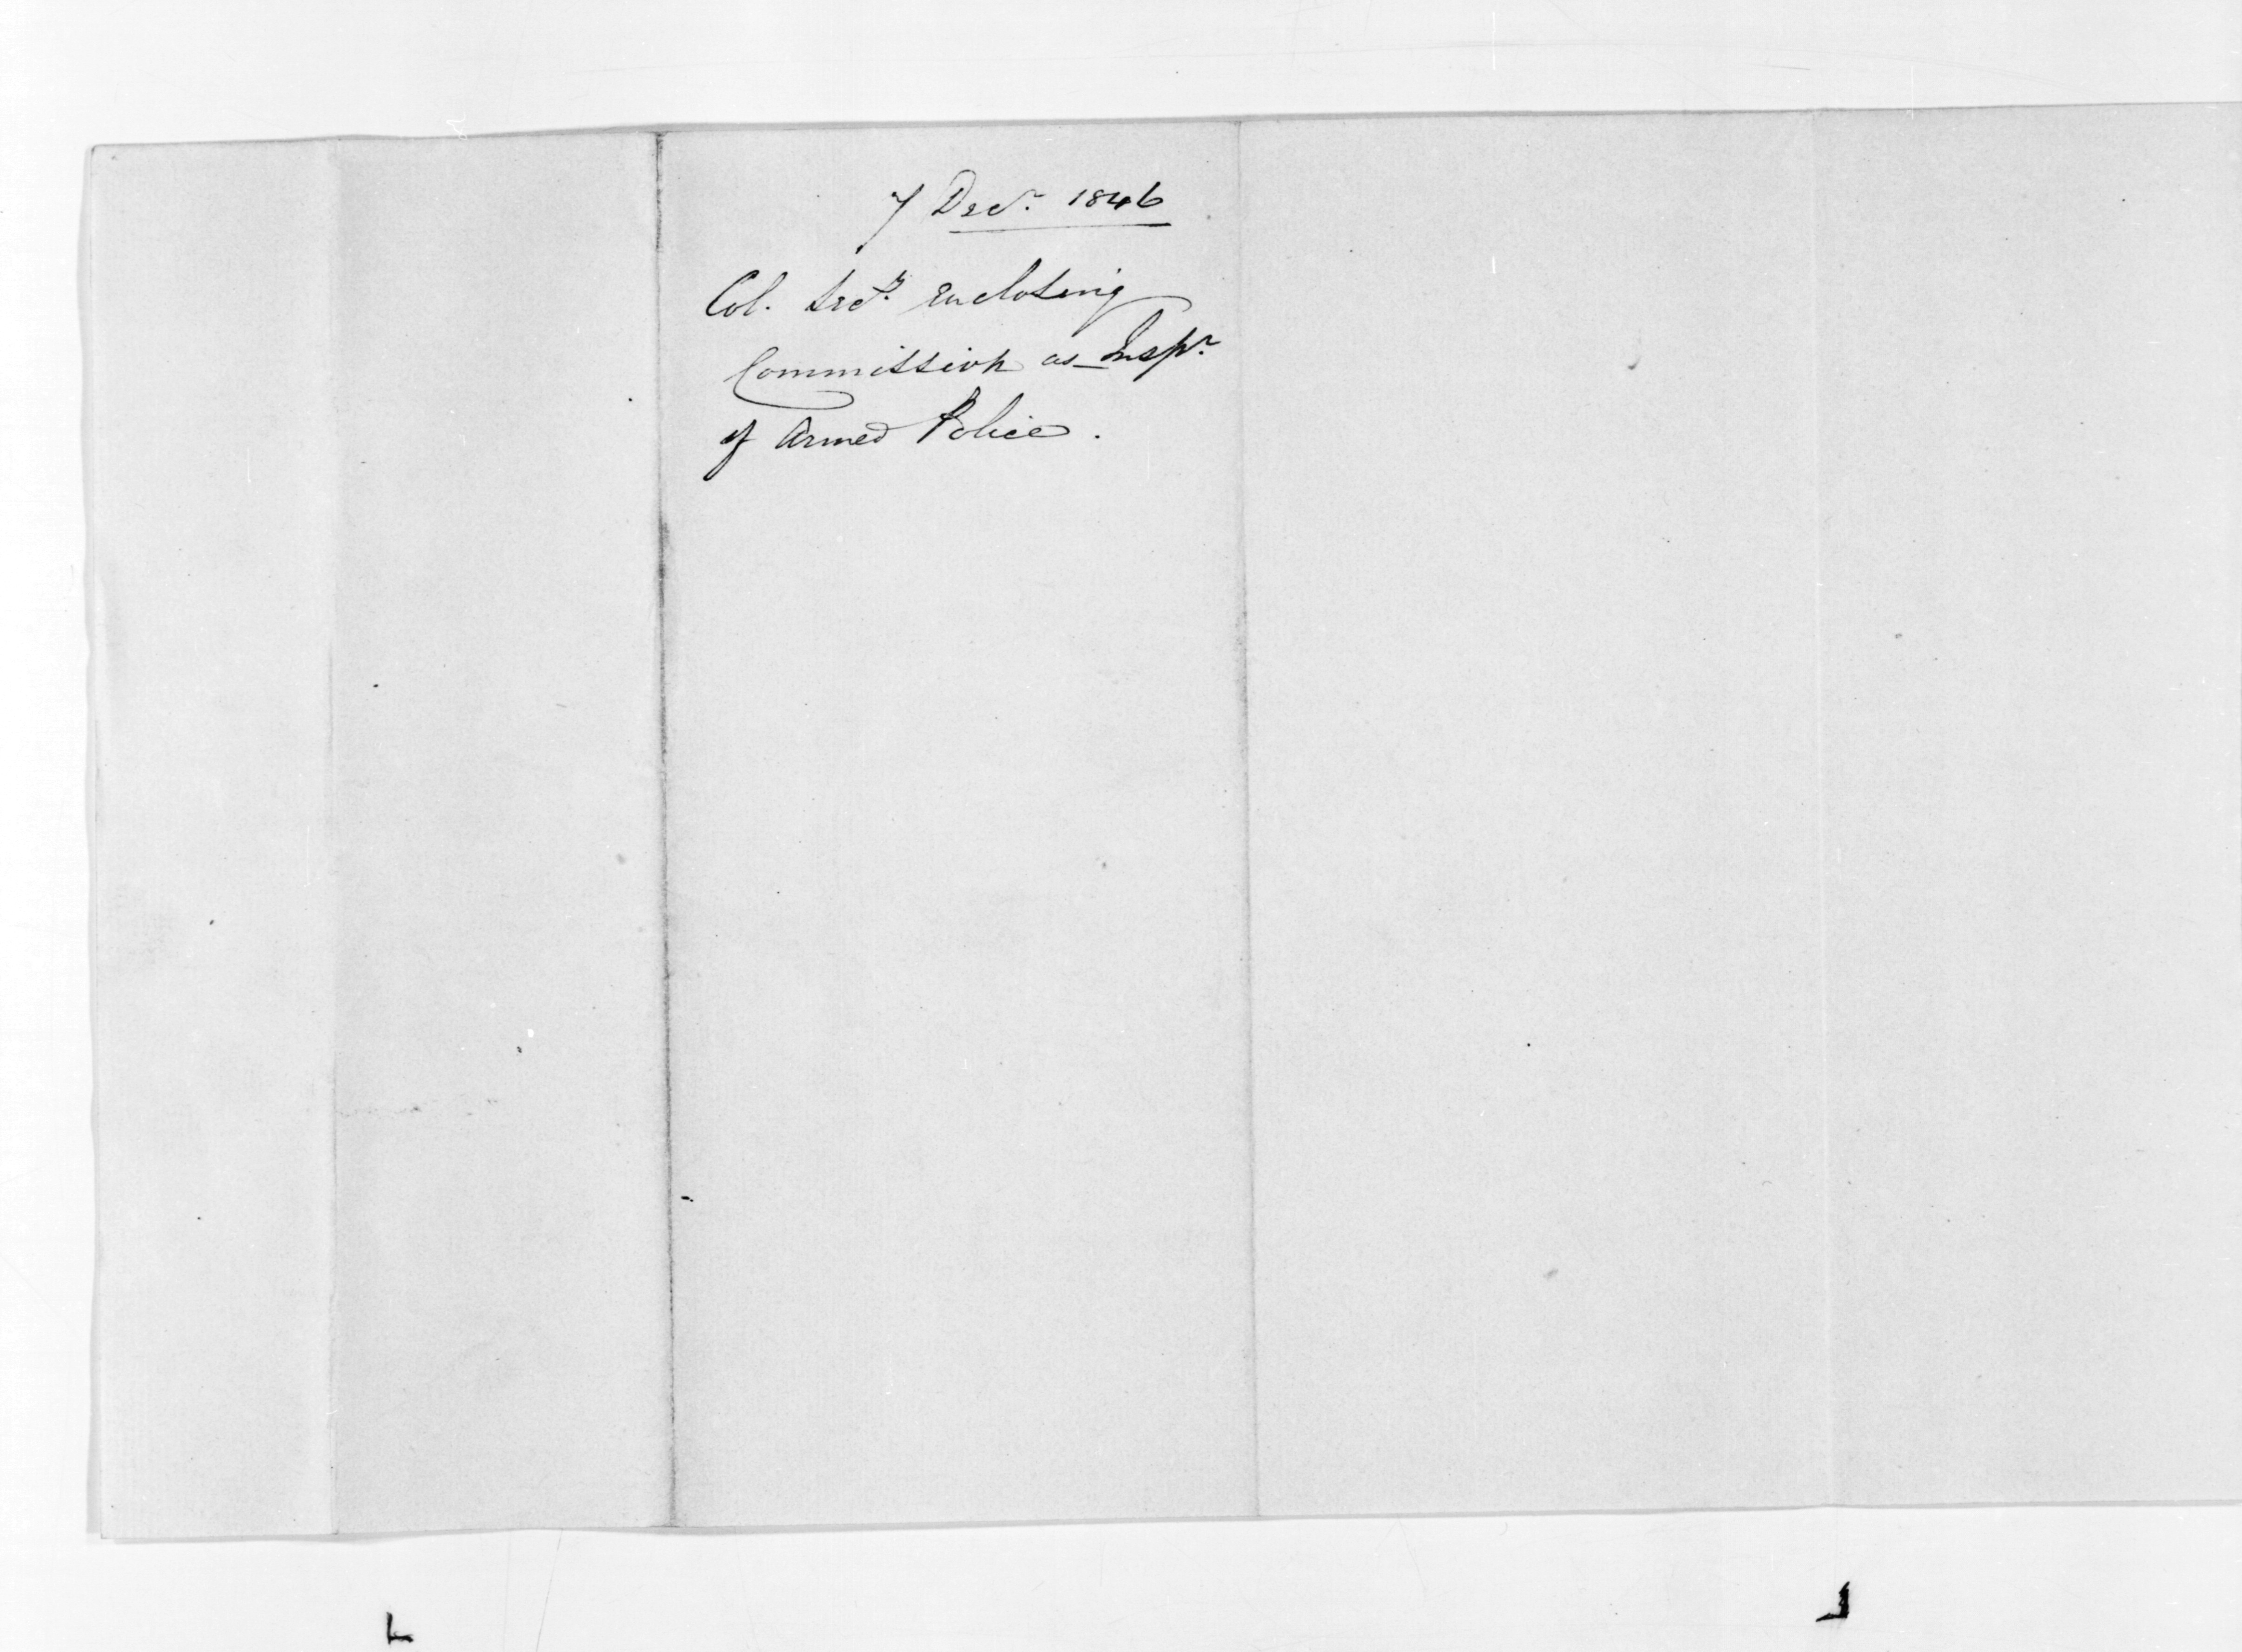 7 Decr. 1846
Col. Secy. enclosing
Commission as Inspr.
of Armed Police.